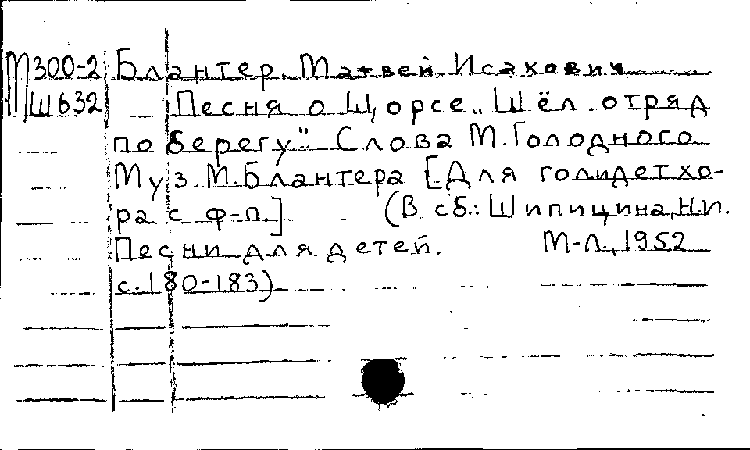 М300-2 Блантер Матвей Исакович
Ш632 Песня о Щорсе „Шёл отряд
по берегу" Слова М. Голодного
Муз. М. Блантера [Для голи дет хо-
ра с ф-п.] (В сб.: Шипицина, Н.И.
Песни для детей. М-Л, 1952
с. 180-183)